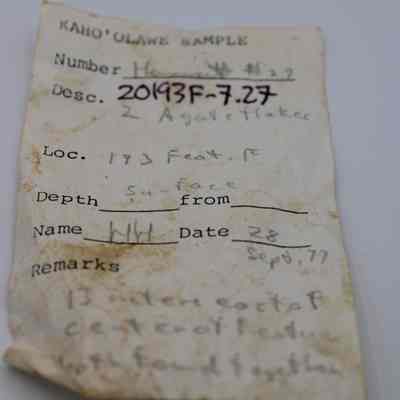 KAHO'OLAWE SAMPLE
Number
Desc. 20193F-7.27
2 Agate flakes
Loc. 193 Feat. F
Surface
Depth from
Name Date 28
Sept, 77
Remarks
13 meters east of
center of Feature
both found together